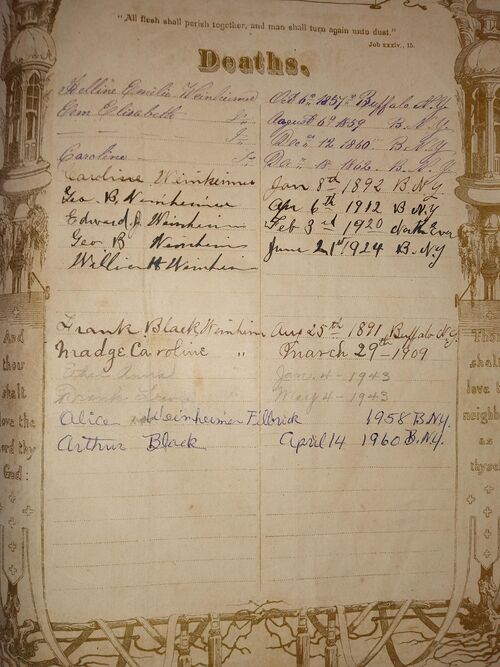 "All flesh shall perish together, and man shall turn again unto dust."
Job xxxiv., 15.
Deaths.
Emilie Weinheimer Oct 6th 1857 Buffalo N.Y.
Elisabeth August 6th 1859 B. N.Y.
Dec 12 1860 B. N.Y.
Caroline 18 1862 B. N.Y.
Caroline Weinheimer Jan 8th 1892 B N.Y.
Geo. B. Weinheimer Apr 6th 1912 B N.Y
Edward J. Weinheimer Feb 3rd 1920 North
Geo B Weinheimer June 21st 1924 B. N.Y
William H Weinheimer
Frank Black Weinheim Aug 25th 1891 Buffalo N.Y.
Madge Caroline " March 29th - 1909
Jan. 4 - 1943
Frank Lewis May 4 - 1943
Alice Weinheimer Filbrick 1958 B.N.Y.
Arthur Black April 14 1960 B.N.Y.
And
thou
shalt
love the
lord thy
God :
Thou
shalt
love
neighb
as
thyse